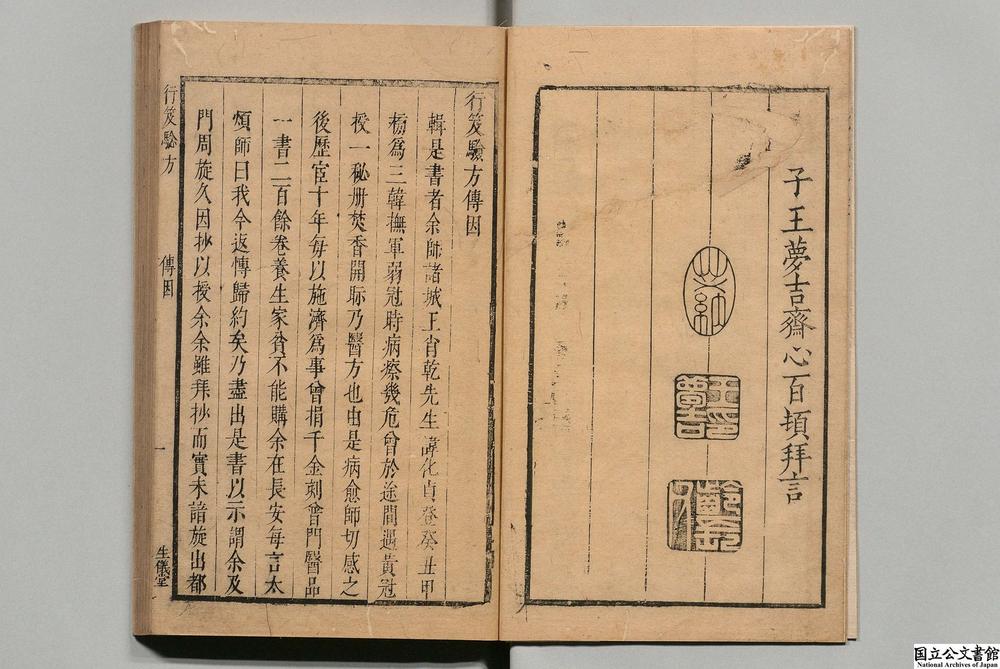 子王夢吉齋心百頓拜言
行笈驗方傳因
輯是書者余師諸城王肖乾先生諱化貞登癸丑甲
榜為三韓撫軍弱冠時病瘵幾危曾於途間遇黃冠
授一秘册焚香開眎乃醫方也由是病愈師切感之
後歷宦十年每以施濟為事曾捐千金刻曾門醫品
一書二百餘卷養生家貧不能購余在長安每言太
煩師曰我今返博歸約矣乃盡出是書以示謂余及
門周旋久因抄以授余余雖拜抄而實未諳旋出都
行笈驗方
傳因
一
生儀堂
国立公文書館
National Archives of Japan